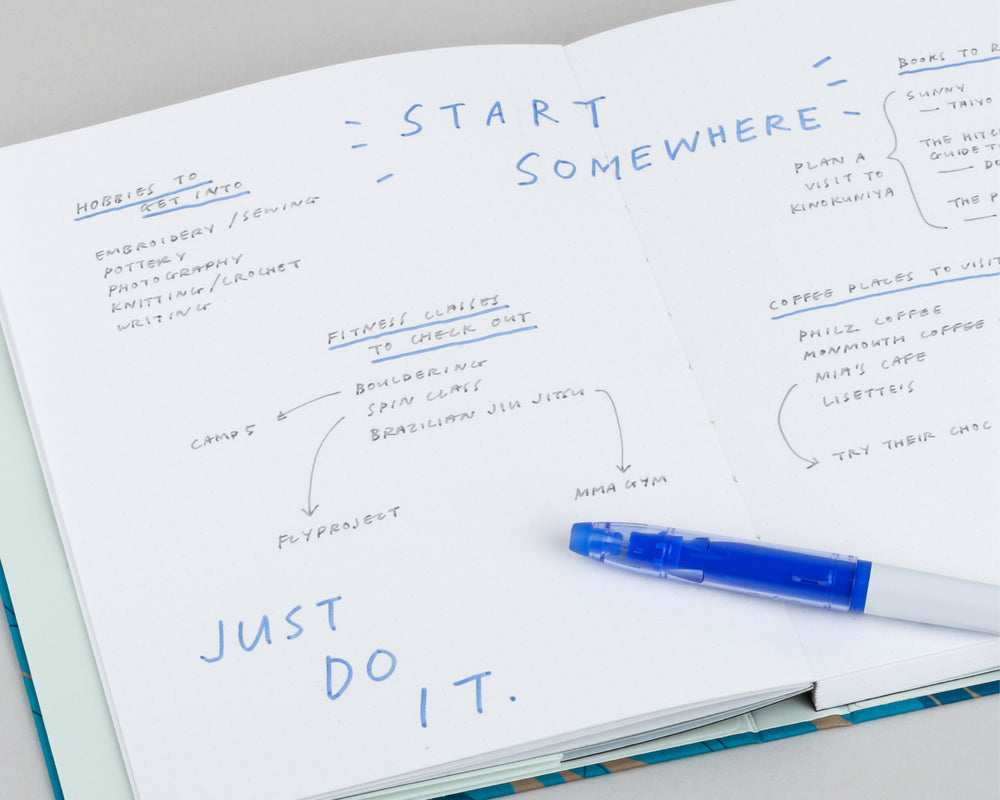 START
SOMEWHERE
HOBBIES TO
GET INTO
EMBROIDERY / SEWING
POTTERY
PHOTOGRAPHY
KNITTING/CROCHET
WRITING
FITNESS CLASSES
TO CHECK OUT
BOULDERING
SPIN CLASS
BRAZILIAN JIU JITSU
CAMP5
FLYPROJECT
MMA GYM
JUST
DO
IT.
BOOKS TO
SUNNY
— TAIYO
THE
GUIDE TO
—
THE
—
PLAN A
VISIT TO
KINOKUNIYA
COFFEE PLACES TO VISIT
PHILZ COFFEE
MONMOUTH COFFEE
MIA'S CAFE
LISETTE'S
TRY THEIR